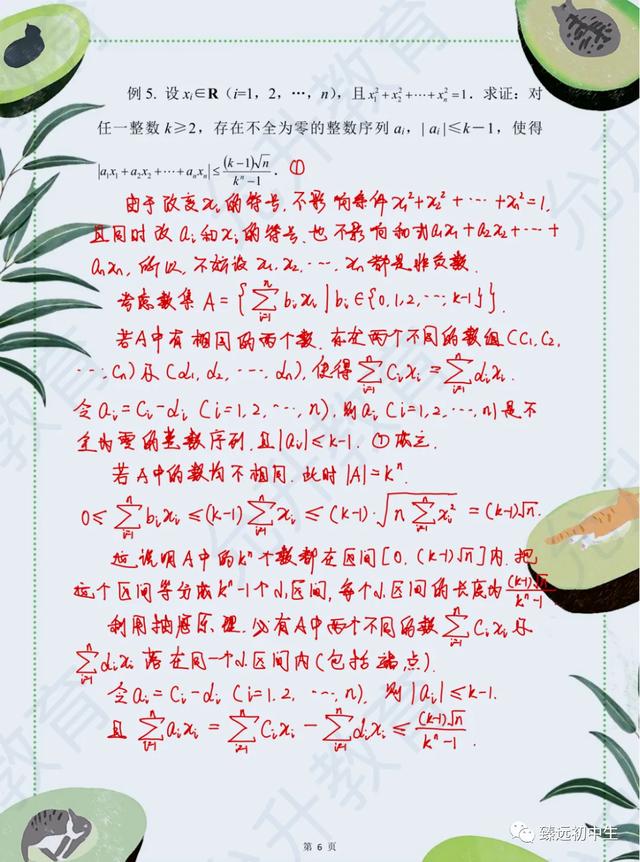 例 5. 设 xᵢ∈R（i=1，2，…，n），且 x₁²+x₂²+⋯+xₙ²=1．求证：对
任一整数 k≥2，存在不全为零的整数序列 aᵢ，| aᵢ |≤k－1，使得
|a₁x₁+a₂x₂+⋯+aₙxₙ| ≤ (k-1)√n / (kⁿ-1)． ①
由于改变xᵢ的符号，不影响条件 x₁²+x₂²+⋯+xₙ²=1，
且同时改aᵢ和xᵢ的符号，也不影响和式a₁x₁+a₂x₂+⋯+
aₙxₙ，所以，不妨设 x₁,x₂,⋯,xₙ都是非负数．
考虑数集 A={∑ᵢ₌₁ⁿ bᵢxᵢ | bᵢ∈{0,1,2,⋯,k-1}}．
若A中有相同的两个数，存在两个不同的数组(C₁,C₂,
⋯,Cₙ)及(d₁,d₂,⋯,dₙ)，使得∑ᵢ₌₁ⁿ Cᵢxᵢ=∑ᵢ₌₁ⁿ dᵢxᵢ．
令aᵢ=Cᵢ-dᵢ (i=1,2,⋯,n)，则aᵢ (i=1,2,⋯,n)是不
全为零的整数序列，且|aᵢ|≤k-1．①成立．
若A中的数均不相同．此时|A|=kⁿ．
0≤∑ᵢ₌₁ⁿ bᵢxᵢ≤(k-1)∑ᵢ₌₁ⁿ xᵢ≤(k-1)·√(n∑ᵢ₌₁ⁿ xᵢ²)=(k-1)√n．
这说明A中的kⁿ个数都在区间[0,(k-1)√n]内．把
这个区间等分成kⁿ-1个小区间，每个小区间的长度为(k-1)√n / (kⁿ-1)
利用抽屉原理，必有A中两个不同的数∑ᵢ₌₁ⁿ Cᵢxᵢ及
∑ᵢ₌₁ⁿ dᵢxᵢ 落在同一个小区间内(包括端点)．
令aᵢ=Cᵢ-dᵢ (i=1,2,⋯,n)．则|aᵢ|≤k-1．
且 ∑ᵢ₌₁ⁿ aᵢxᵢ=∑ᵢ₌₁ⁿ Cᵢxᵢ-∑ᵢ₌₁ⁿ dᵢxᵢ≤(k-1)√n / (kⁿ-1)．
臻远初中生
第 6 页
允升教育